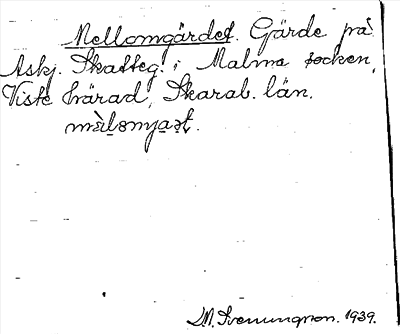 Mellomgärdet. Gärde på
Askj. Skatteg. i Malma socken,
Viste härad, Skarab. län.
L.M. Svenungson. 1939.